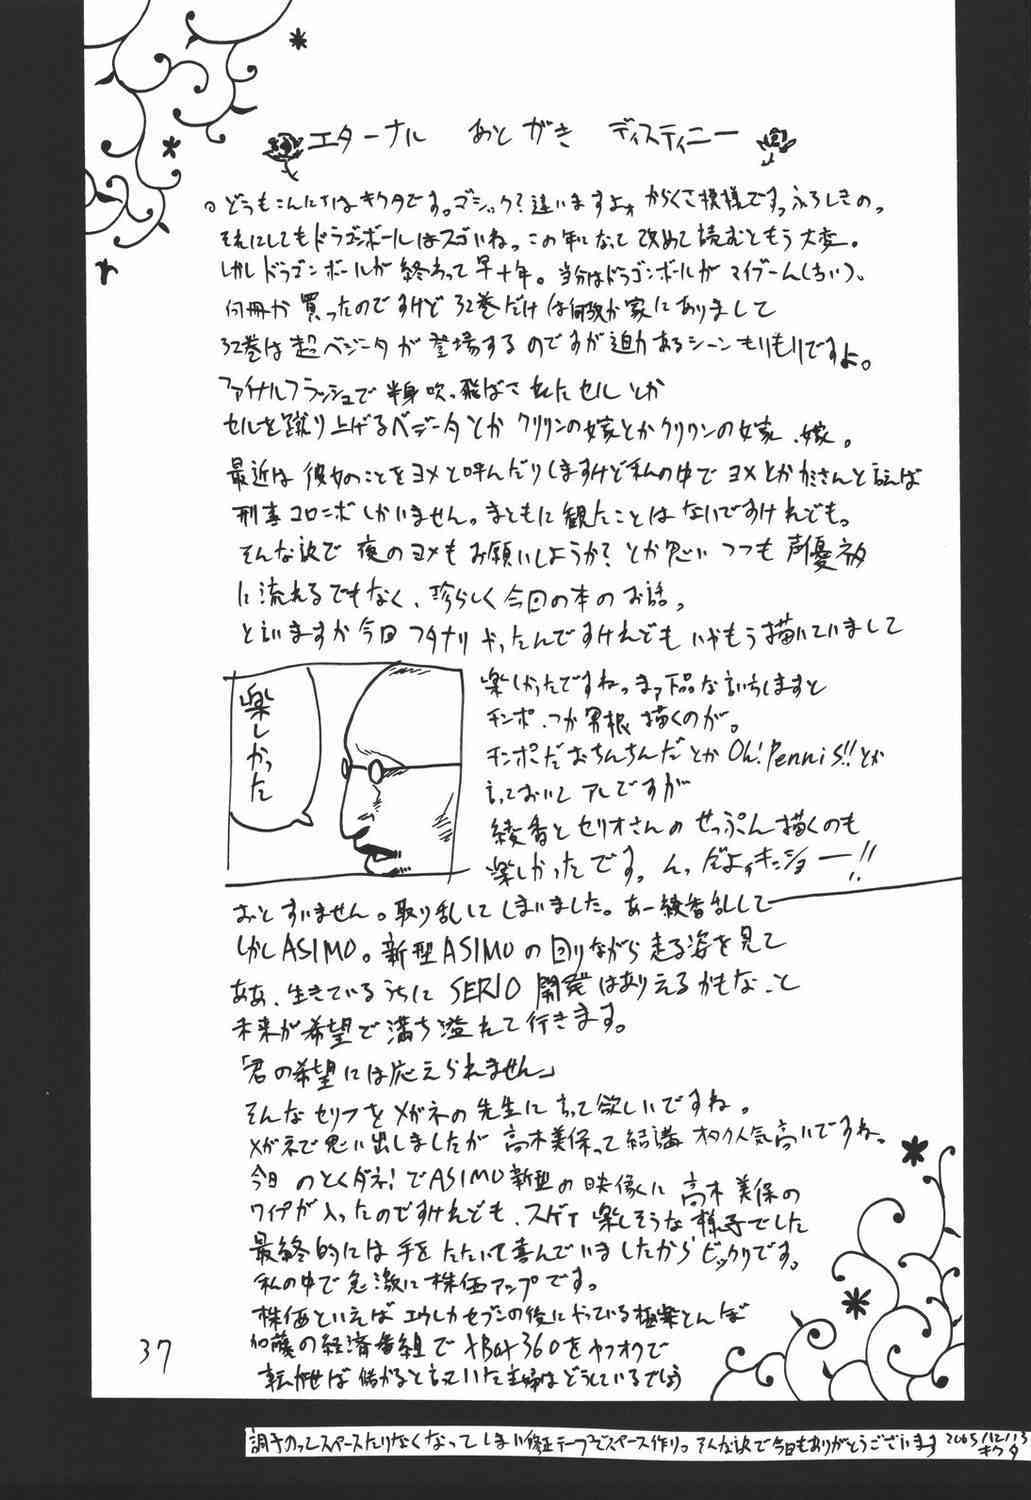 エターナル あとがき ディスティニー
どうもこんにちはキクタです。ゴシック?違いますよォ からくさ模様です。ふろしきの。
それにしてもドラゴンボールはスゴいね。この年になって改めて読むともう大変。
しかしドラゴンボールが終わって早十年。当分はドラゴンボールがマイブーム(古い)。
何冊か買ったのですけど32巻だけは何故か家にありまして
32巻は超ベジータが登場するのですが迫力あるシーンもりもりですよ。
ファイナルフラッシュで半身吹っ飛ばされたセルとか
セルを蹴り上げるベジータとかクリリンの嫁とかクリリンの嫁、嫁。
最近は彼女のことをヨメと呼んだりしますけど私の中でヨメとかカミさんと言えば
刑事コロンボしかいません。まともに観たことはないですけれども。
そんな訳で夜のヨメもお願いしようか?とか思いつつも声優ネタ
に流れるでもなく、珍らしく今回の本のお話。
と言いますか今回フタナリやったんですけれどもいやもう描いていまして
楽しかった
楽しかったですね。まァ下品な言い方しますと
チンポ、つか男根描くのが。
チンポだおちんちんだとかOh! Pennis!!とか
言っておいてアレですが
綾香とセリオさんのせっぷん描くのも
楽しかったです。んっだよォキンショー!!
おっとすいません。取り乱してしまいました。あー綾香乱して
しかしASIMO。新型ASIMOの回りながら走る姿を見て
ああ、生きているうちにSERIO開発はありえるかもなっと
未来が希望で満ち溢れて行きます。
「君の希望には応えられません」
そんなセリフをメガネの先生に言って欲しいですね。
メガネで思い出しましたが高木美保って結講オタク人気高いですね。
今日のとくダネ!でASIMO新型の映像に高木美保の
ワイプが入ったのですけれども、スゲェ楽しそうな様子でした
最終的には手をたたいて喜んでいましたからビックリです。
私の中で急激に株価アップです。
株価といえばエウレカセブンの後にやっている極楽とんぼ
加藤の経済番組でXBOX360をヤフオクで
転売せば儲かると言っていた主婦はどうしているでしょう
37
調子のってスペースたりなくなってしまい修正テープでスペース作り。そんな訳で今日もありがとうございます 2005/12/13
キクタ